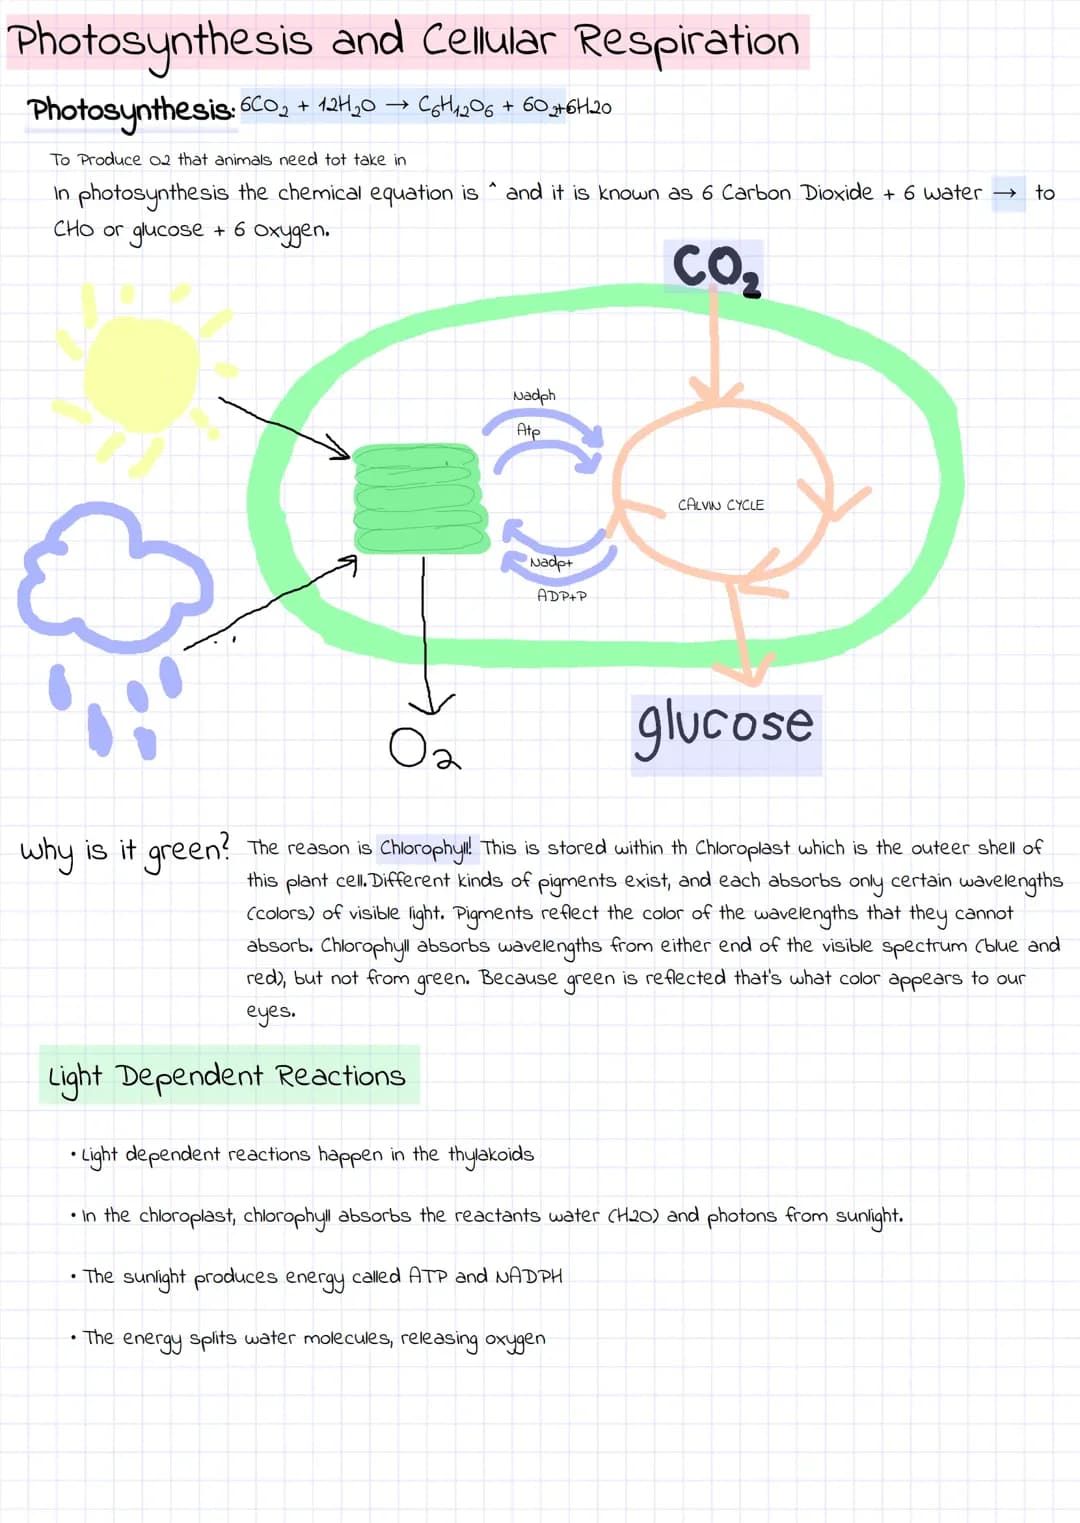 Photosynthesis and Cellular Respiration
Photosynthesis: 6CO₂ + 12H₂O → C₆H₁₂O₆ + 6O₂+6H2O
To Produce O2 that animals need tot take in
In photosynthesis the chemical equation is ^ and it is known as 6 Carbon Dioxide + 6 water → to
CHO or glucose + 6 Oxygen.
CO₂
Nadph
Atp
CALVIN CYCLE
Nadp+
ADP+P
glucose
O₂
why is it green? The reason is Chlorophyll! This is stored within th Chloroplast which is the outeer shell of
this plant cell. Different kinds of pigments exist, and each absorbs only certain wavelengths
(colors) of visible light. Pigments reflect the color of the wavelengths that they cannot
absorb. Chlorophyll absorbs wavelengths from either end of the visible spectrum (blue and
red), but not from green. Because green is reflected that's what color appears to our
eyes.
Light Dependent Reactions
• Light dependent reactions happen in the thylakoids
• In the chloroplast, chlorophyll absorbs the reactants water (H2O) and photons from sunlight.
• The sunlight produces energy called ATP and NADPH
• The energy splits water molecules, releasing oxygen